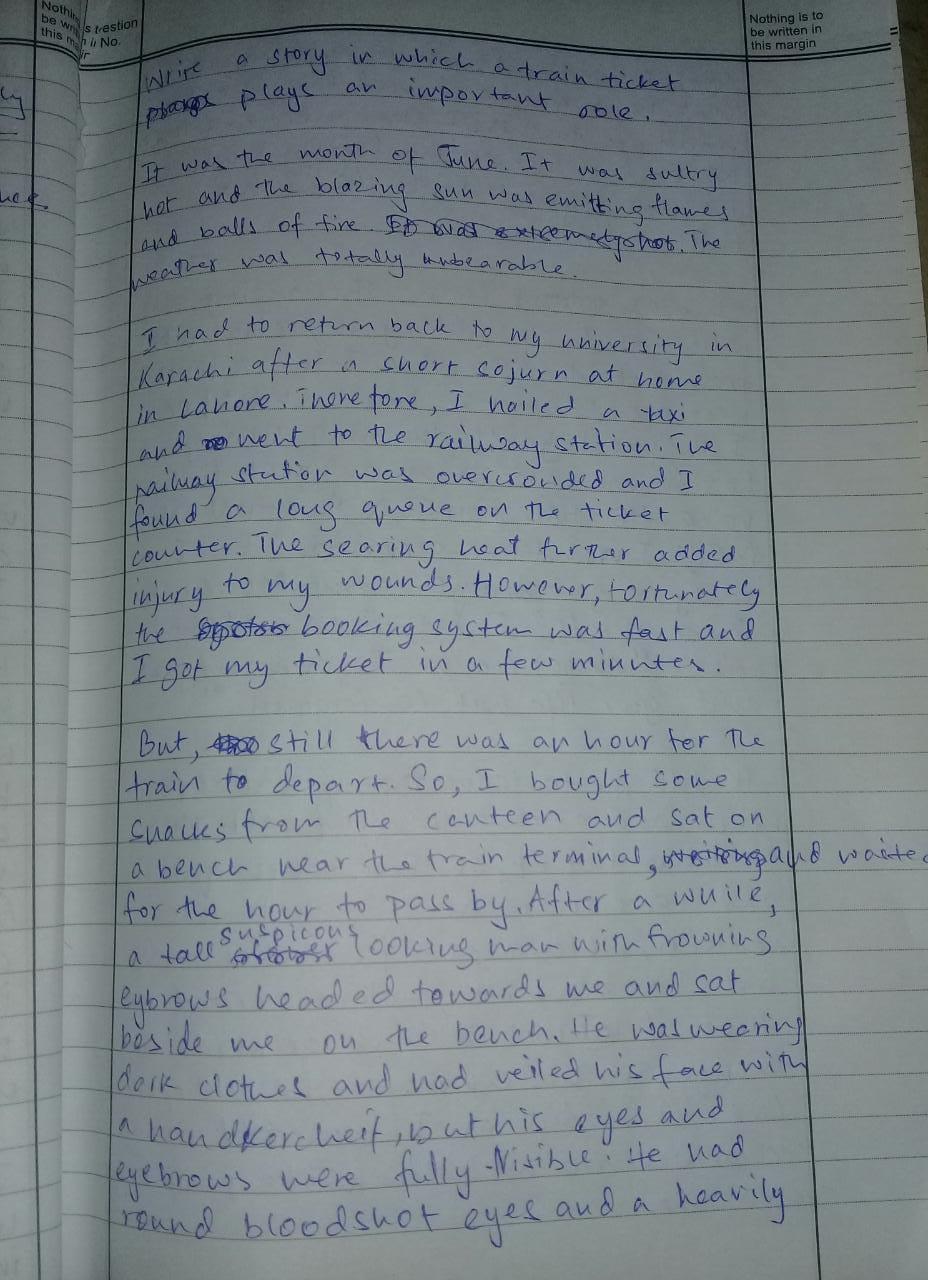 Nothing
be wri
this m
s
n
ir
restion
No.
Nothing is to
be written in
this margin
Write a story in which a train ticket
plays an important role.
It was the month of June. It was sultry
hot and the blazing sun was emitting flames
and balls of fire. It was extremely hot. The
weather was totally unbearable.
I had to return back to my university in
Karachi after a short sojurn at home
in Lahore. Therefore, I hailed a taxi
and went to the railway station. The
railway station was overcrouded and I
found a long queue on the ticket
counter. The searing heat further added
injury to my wounds. However, fortunately
the booking system was fast and
I got my ticket in a few minutes.
But, still there was an hour for the
train to depart. So, I bought some
snacks from the canteen and sat on
a bench near the train terminal, waiting and waite
for the hour to pass by. After a while,
suspicous
a tall looking man with frowning
eybrows headed towards me and sat
beside me on the bench. He was wearing
dark clothes and had veiled his face with
a handkercheif, but his eyes and
eyebrows were fully visible. He had
round bloodshot eyes and a heavily